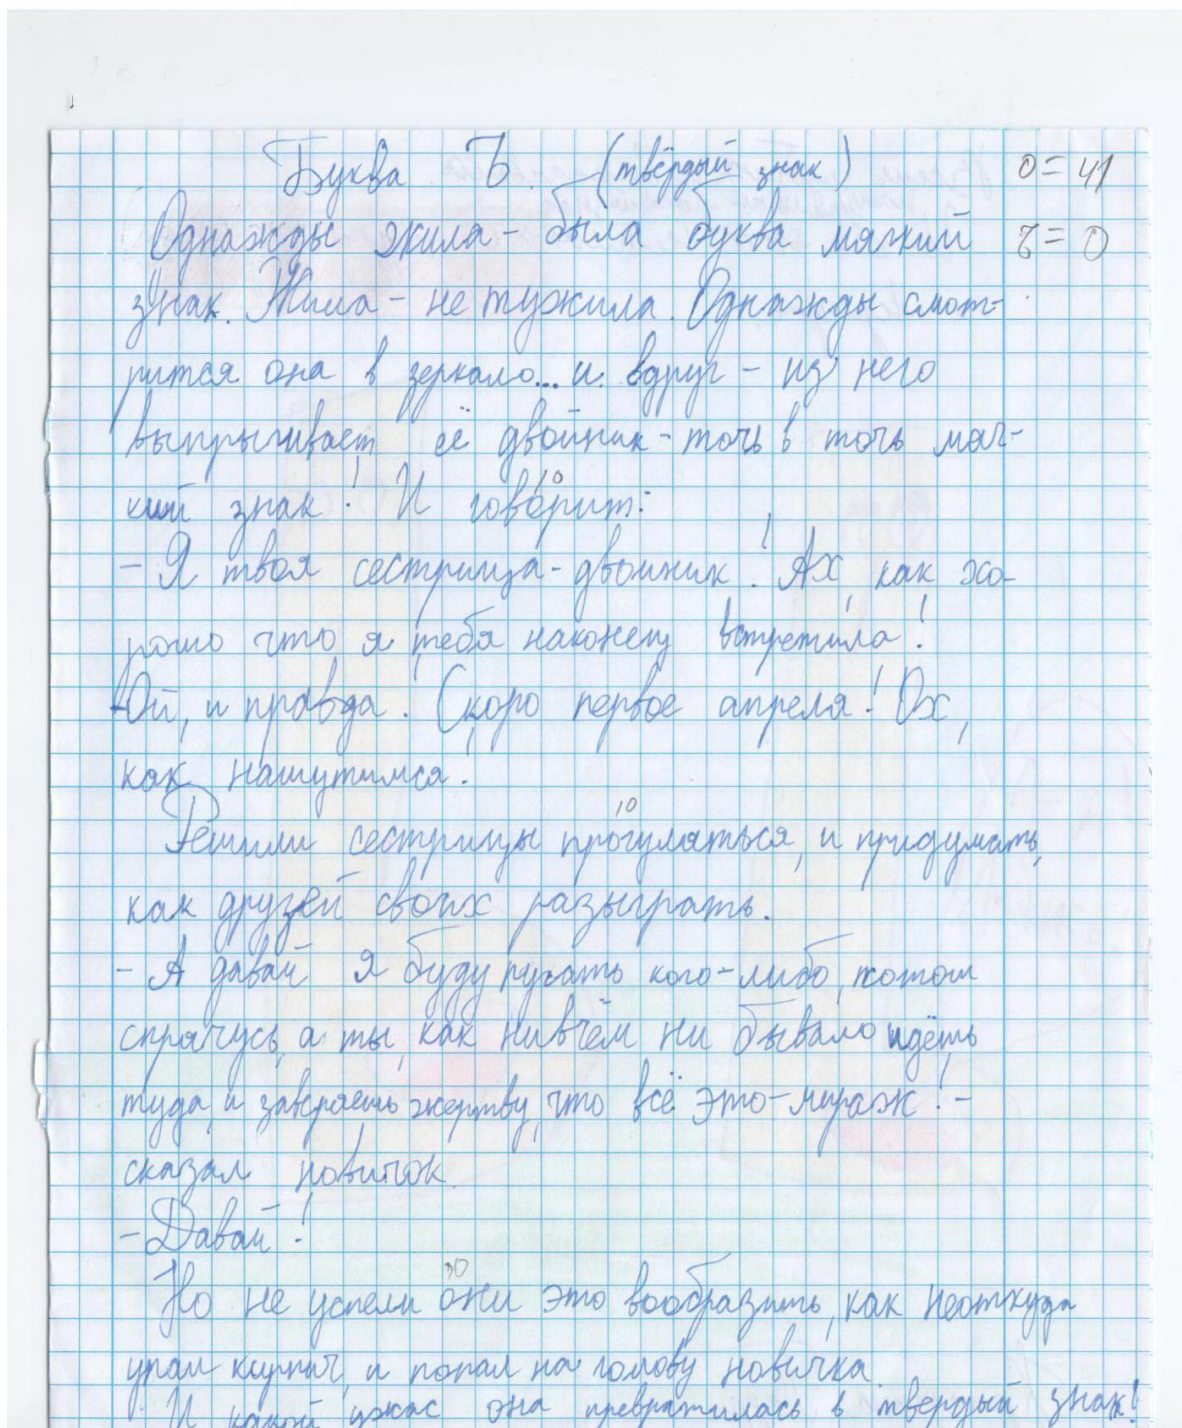 Буква Ъ (твёрдый знак) о=41
Однажды жила-была буква мягкий ъ=0
знак. Жила-не тужила. Однажды смот-
рится она в зеркало... и вдруг - из него
выпрыгивает её двойник-точь в точь мяг-
кий знак! И говорит: 10
- Я твоя сестрица-двойник! Ах, как хо-
рошо что я тебя наконец встретила!
-Ой, и правда! Скоро первое апреля! Ох,
как нашутимся!
Решили сестрицы прогуляться, и придумать, 10
как друзей своих разыграть.
- А давай я буду пугать кого-либо, потом
спрячусь, а ты, как нивчём ни бывало идёшь
туда и заверяешь жертву, что всё это-мираж! -
сказал новичок.
- Давай!
Но не успели они это вообразить, как неоткуда 30
упал кирпич, и попал на голову новичка.
И какой ужас она превратилась в твердый знак!